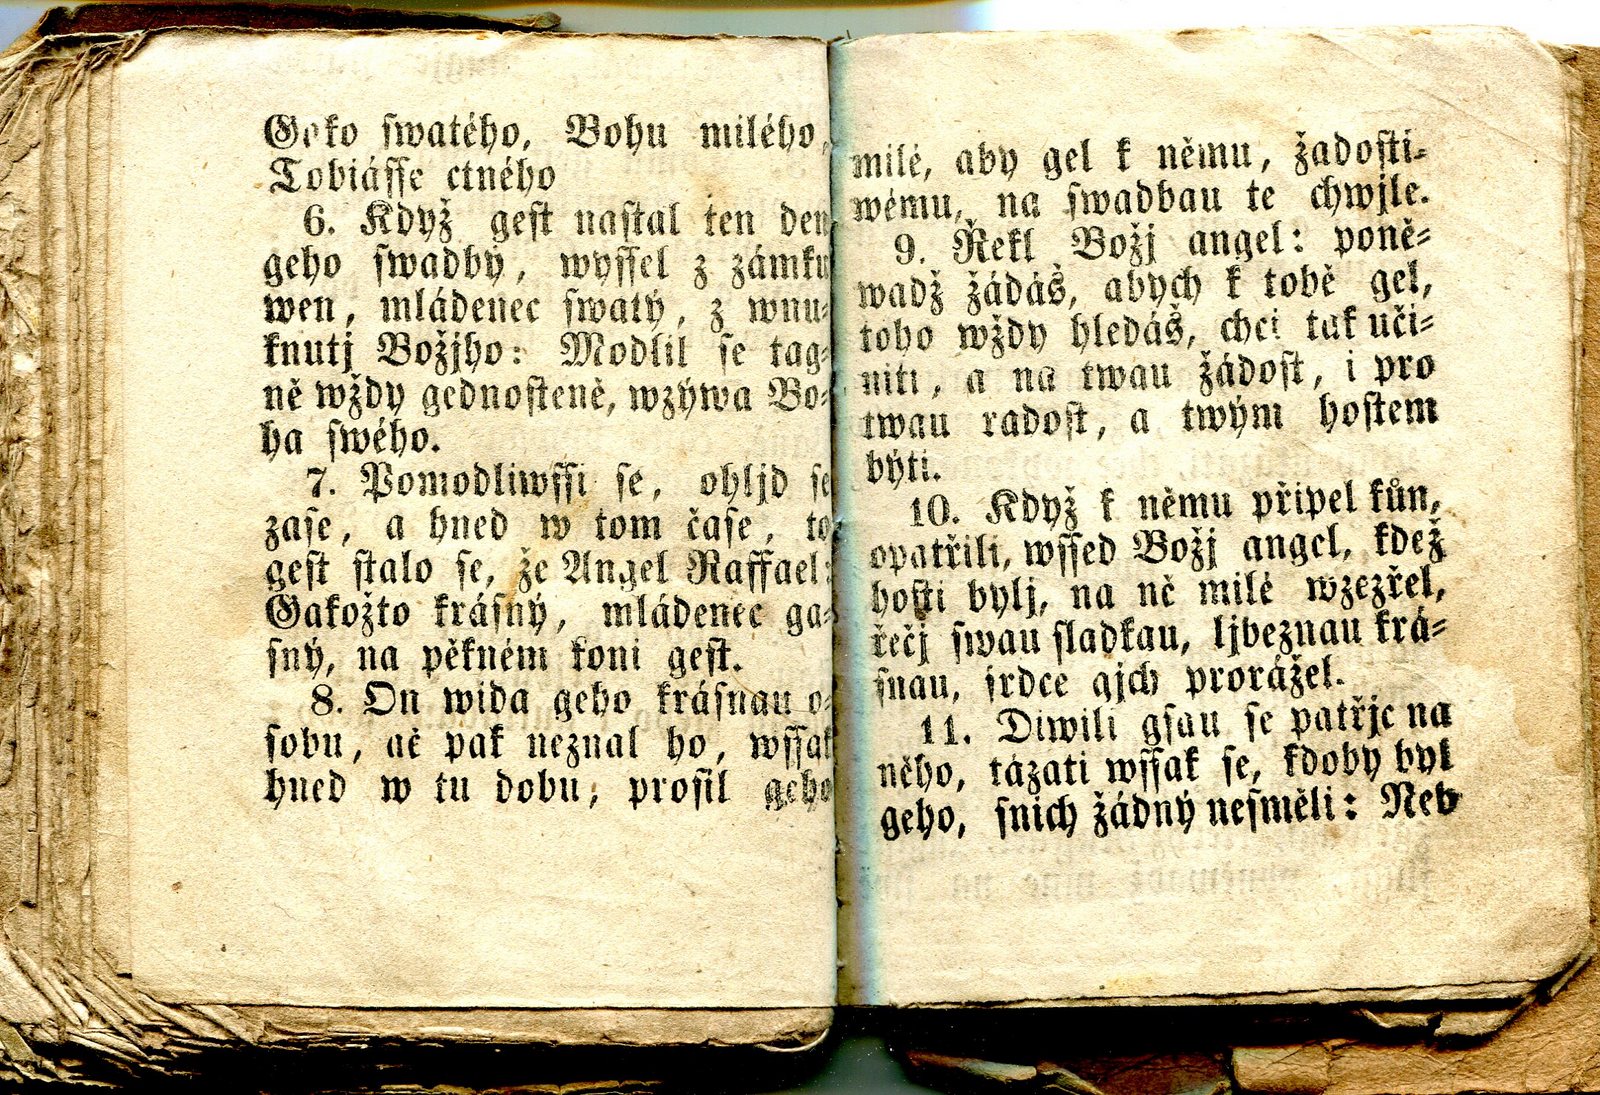 Gako swatého, Bohu milého,
Tobiásse ctného
6. Když gest nastal ten den
geho swadby, wyssel z zámku
wen, mládenec swatý, z wnu=
knutj Božjho: Modlil se tag=
ně wždy gednosteně, wzýwa Bo=
ha swého.
7. Pomodliwssi se, ohljd se
zase, a hned w tom čase, to
gest stalo se, že Angel Raffael:
Gakožto krásný, mládenec ga=
sný, na pěkném koni gest.
8. On wida geho krásnau o=
sobu, ač pak neznal ho, wssak
hned w tu dobu, prosil geho
milé, aby gel k němu, žadosti=
wému, na swadbau te chwjle.
9. Řekl Božj angel: poně=
wadž žádáš, abych k tobě gel,
toho wždy hledáš, chci tak uči=
niti, a na twau žádost, i pro
twau radost, a twým hostem
býti.
10. Když k němu připel kůn,
opatřili, wssed Božj angel, kdež
hosti bylj, na ně milé wzezřel,
řečj swau sladkau, ljbeznau krá=
snau, srdce gjch prorážel.
11. Diwili gsau se patřjc na
něho, tázati wssak se, kdoby byl
geho, snich žádný nesměli: Neb